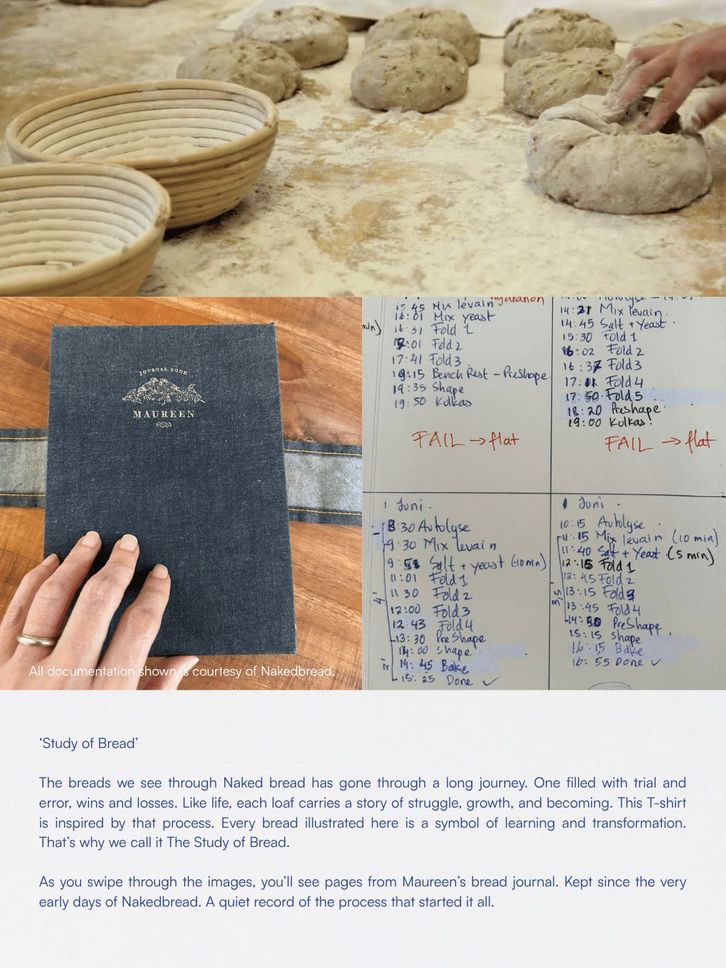 JOURNAL BOOK
MAUREEN
All documentation shown is courtesy of Nakedbread.
15:45 Mix levain
16:01 Mix yeast
16:31 Fold 1
17:01 Fold 2
17:41 Fold 3
19:15 Bench Rest – Preshape
19:35 Shape
19:50 Kulkas
FAIL → flat
14:21 Mix levain
14:45 Salt + Yeast
15:30 Fold 1
16:02 Fold 2
16:37 Fold 3
17:11 Fold 4
17:50 Fold 5
18:20 Preshape
19:00 Kulkas
FAIL → flat
1 Juni.
8:30 Autolyse
9:30 Mix levain
Salt + yeast (10 min)
11:01 Fold 1
11:30 Fold 2
12:00 Fold 3
12:43 Fold 4
13:30 PreShape
14:00 Shape
14:45 Bake
15:25 Done ✓
1 Juni.
10:15 Autolyse
11:15 Mix levain (10 min)
11:40 Salt + Yeast (5 min)
12:15 Fold 1
12:45 Fold 2
13:15 Fold 3
13:45 Fold 4
14:50 PreShape
15:15 shape
16:15 Bake
16:55 Done ✓
‘Study of Bread’
The breads we see through Naked bread has gone through a long journey. One filled with trial and
error, wins and losses. Like life, each loaf carries a story of struggle, growth, and becoming. This T-shirt
is inspired by that process. Every bread illustrated here is a symbol of learning and transformation.
That’s why we call it The Study of Bread.
As you swipe through the images, you’ll see pages from Maureen’s bread journal. Kept since the very
early days of Nakedbread. A quiet record of the process that started it all.